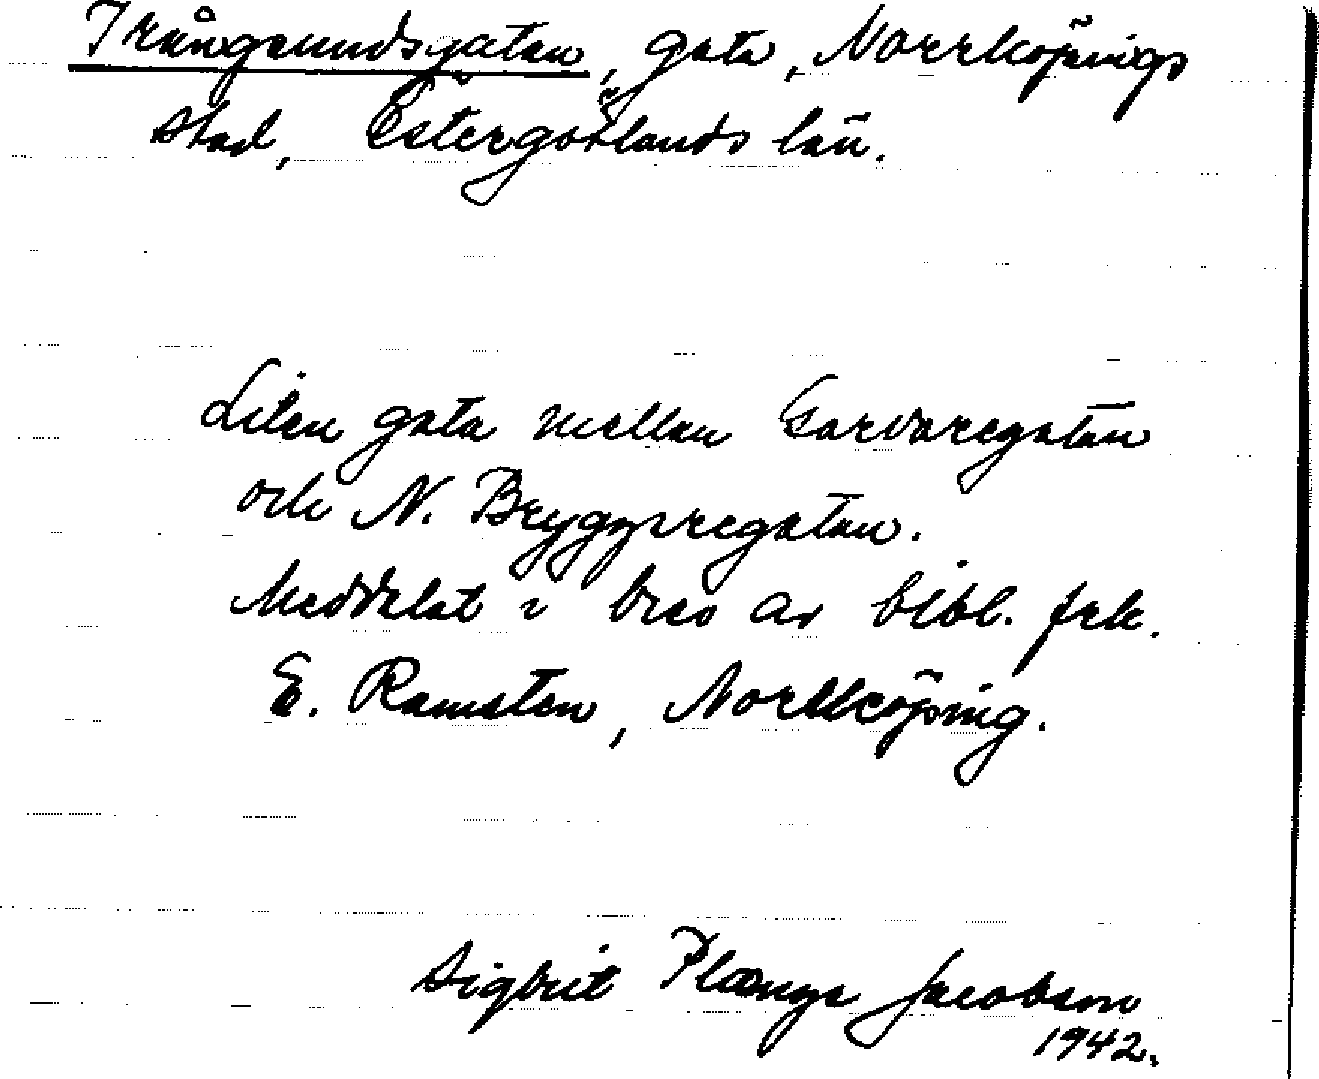 Trångsundsgatan, gata, Norrköpings
stad, Östergötlands län.
Liten gata mellan Garvaregatan
och N. Bryggaregatan.
Meddelat i brev av bibl. frk.
E. Ramsten, Norrköping.
Sigbrit Plænge Jacobson
1942.